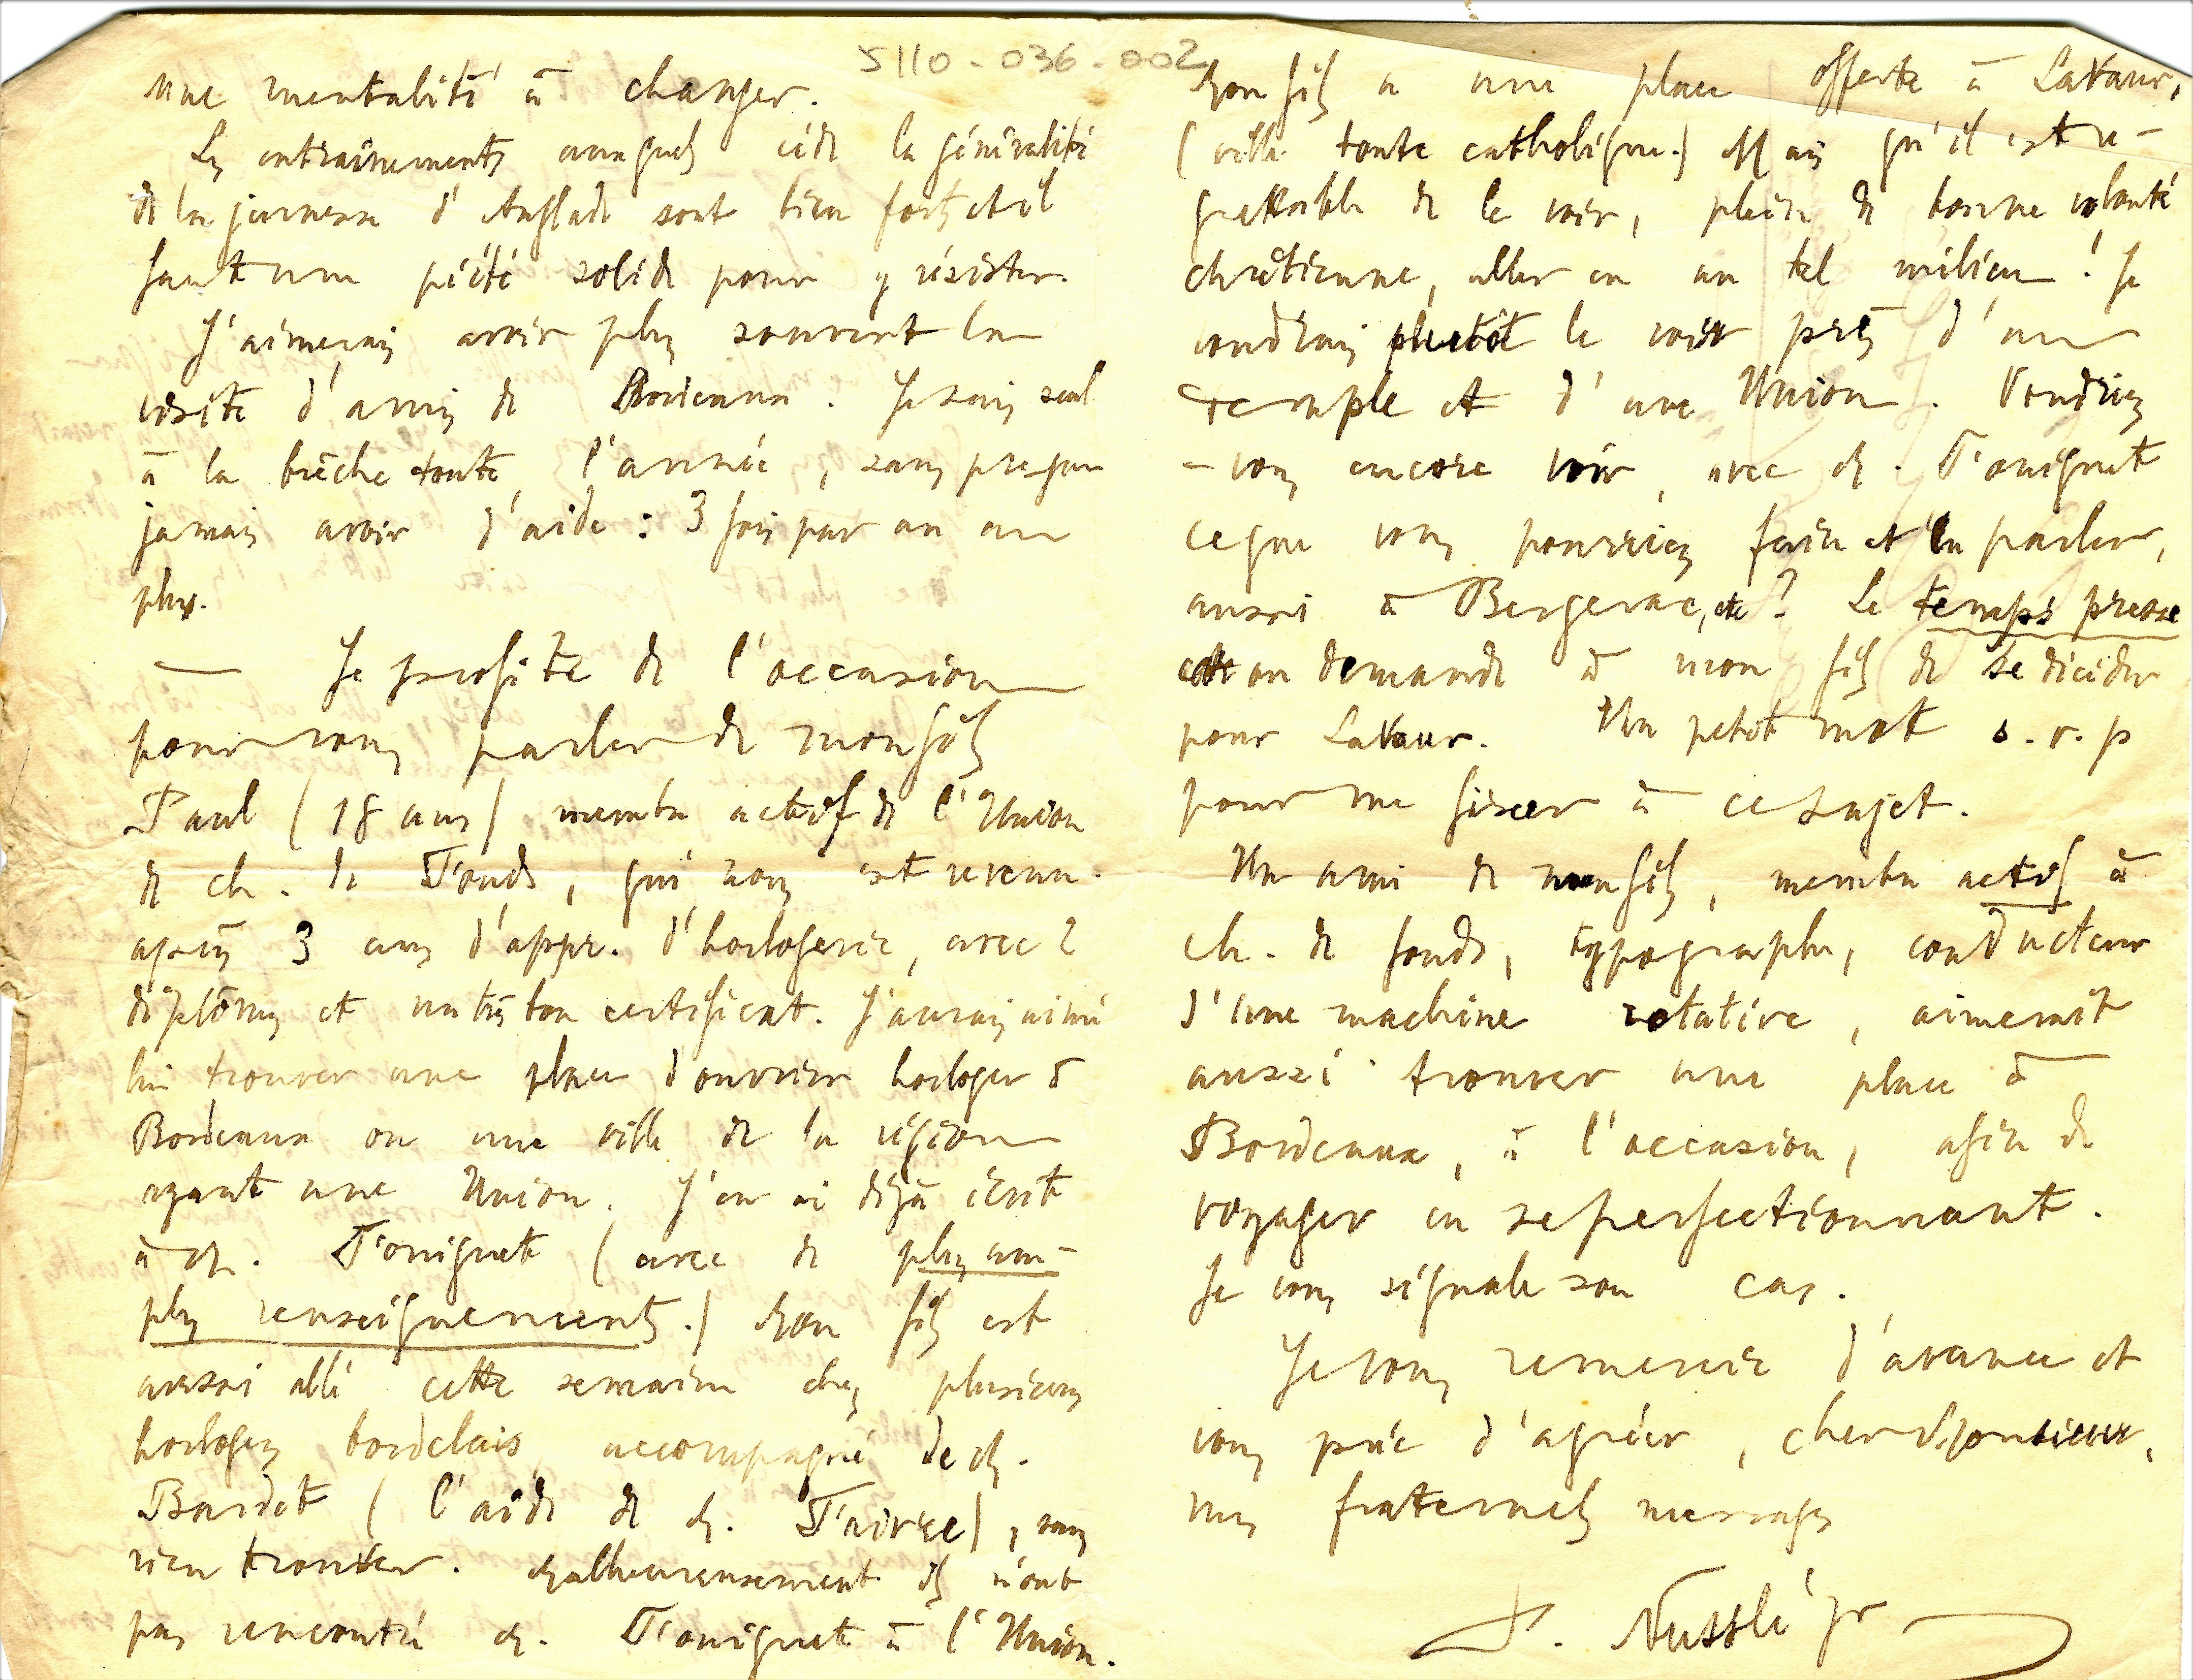 5110-036-002
une mentalité à changer.
Les entraînements auxquels cède la généralité
de la jeunesse d'Anglade sont bien forts et il
faut une piété solide pour y résister.
J'aimerais avoir plus souvent la
visite d'amis de Bordeaux. Je suis seul
à la brèche toute l'année, sans presque
jamais avoir d'aide : 3 fois par an au
plus.
— Je profite de l'occasion
pour vous parler de mon fils
Paul (18 ans) membre actif de l'Union
de Ch. de Fonds, qui nous est revenu
après 3 ans d'appr. d'horlogerie, avec 2
diplômes et un très bon certificat. J'aurais aimé
lui trouver une place d'ouvrier horloger à
Bordeaux ou une ville de la région
ayant une Union. J'en ai déjà écrit
à M. Touignet (avec de plus am-
ples renseignements.) Mon fils est
aussi allé cette semaine chez plusieurs
horlogers bordelais accompagné de M.
Bardet (l'aide de M. Faivre), sans
rien trouver. Malheureusement ils n'ont
pas rencontré M. Touignet à l'Union.
Mon fils a une place offerte à LaVaur,
(ville toute catholique.) Mais qu'il est re-
grettable de le voir, plein de bonne volonté
chrétienne, aller en un tel milieu ! Je
voudrais plutôt le voir près d'un
temple et d'une Union. Voudriez
-vous encore voir, avec M. Touignet
ce que vous pourriez faire et en parler,
aussi à Bergerac, etc ? Le temps presse
et on demande à mon fils de se décider
pour LaVaur. Un petit mot s.v.p
pour me fixer à ce sujet.
Un ami de mon fils, membre actif à
Ch. de fonds, typographe, conducteur
d'une machine rotative, aimerait
aussi trouver une place à
Bordeaux, à l'occasion, afin de
voyager en se perfectionnant.
Je vous signale son cas.
Je vous remercie d'avance et
vous prie d'agréer, cher Monsieur,
mes fraternels messages
P. Nusslé pr